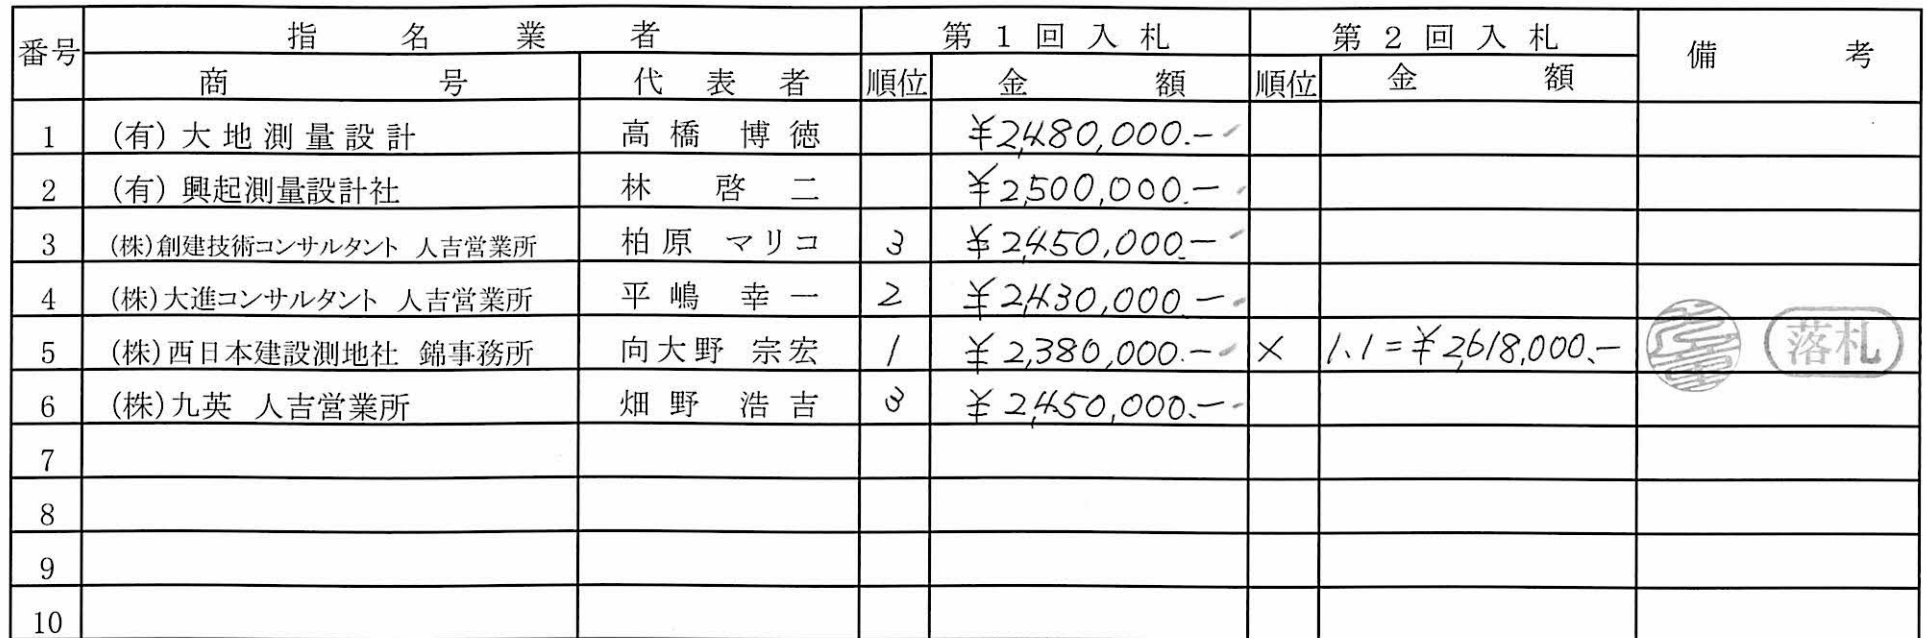 番号 指名業者 第1回入札 第2回入札 備考
商号 代表者 順位 金額 順位 金額
1 (有)大地測量設計 高橋 博徳 ¥2,480,000.-
2 (有)興起測量設計社 林 啓二 ¥2,500,000.-
3 (株)創建技術コンサルタント 人吉営業所 柏原 マリコ 3 ¥2,450,000-
4 (株)大進コンサルタント 人吉営業所 平嶋 幸一 2 ¥2,430,000-
5 (株)西日本建設測地社 錦事務所 向大野 宗宏 1 ¥2,380,000.- × 1.1=¥2,618,000.- 落札
6 (株)九英 人吉営業所 畑野 浩吉 3 ¥2,450,000.-
7
8
9
10